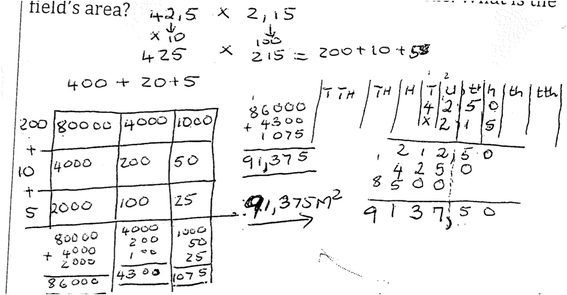 field's area?
42,5 × 2,15
×10 100
425 × 215 = 200+10+5
400 + 20+5
200 80000 4000 1000
+
10 4000 200 50
+
5 2000 100 25
80000 4000 1000
+ 4000 200 50
2000 100 25
86000 4300 1075
1
86000
+ 4300
1075
91,375
91,375M²
TTH TH H T U th h th tth
1 2
4 2 5 0
× 2 1 5
1 2 1 2,5 0
4 2 5 0
8 5 0 0
9 1 3 7,5 0